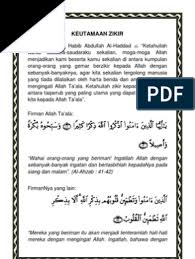 KEUTAMAAN ZIKIR
Habib Abdullah Al-Haddad
"Ketahuilah
saudara-saudaraku sekalian, moga-moga Allah
menjadikan kami beserta kamu sekalian di antara kumpulan
orang-orang yang gemar berzikir kepada Allah dengan
sebanyak-banyaknya, agar kita sekalian tergolong manusia
yang tiada dilalaikan oleh
dan
dan
kita kepada Allah Ta'ala".
PDF
Firman Allah Ta'ala:
يَا أَيُّهَا الَّذِينَ آمَنُوا اذْكُرُوا اللَّهَ ذِكْرًا كَثِيرًا ۝ وَسَبِّحُوهُ بُكْرَةً
وَأَصِيلًا ۝
"Wahai orang-orang yang beriman! Ingatlah Allah dengan
sebanyak-banyaknya, dan bertasbihlah kepadaNya pada
siang dan malam". (Al-Ahzab : 41-42)
FirmanNya yang lain:
الَّذِينَ آمَنُوا وَتَطْمَئِنُّ قُلُوبُهُم بِذِكْرِ اللَّهِ ۗ أَلَا بِذِكْرِ
اللَّهِ تَطْمَئِنُّ الْقُلُوبُ ۝
"Mereka yang beriman itu akan menjadi tenteramlah hati-hati
mereka dengan mengingat Allah. Ingatlah, bahawa dengan